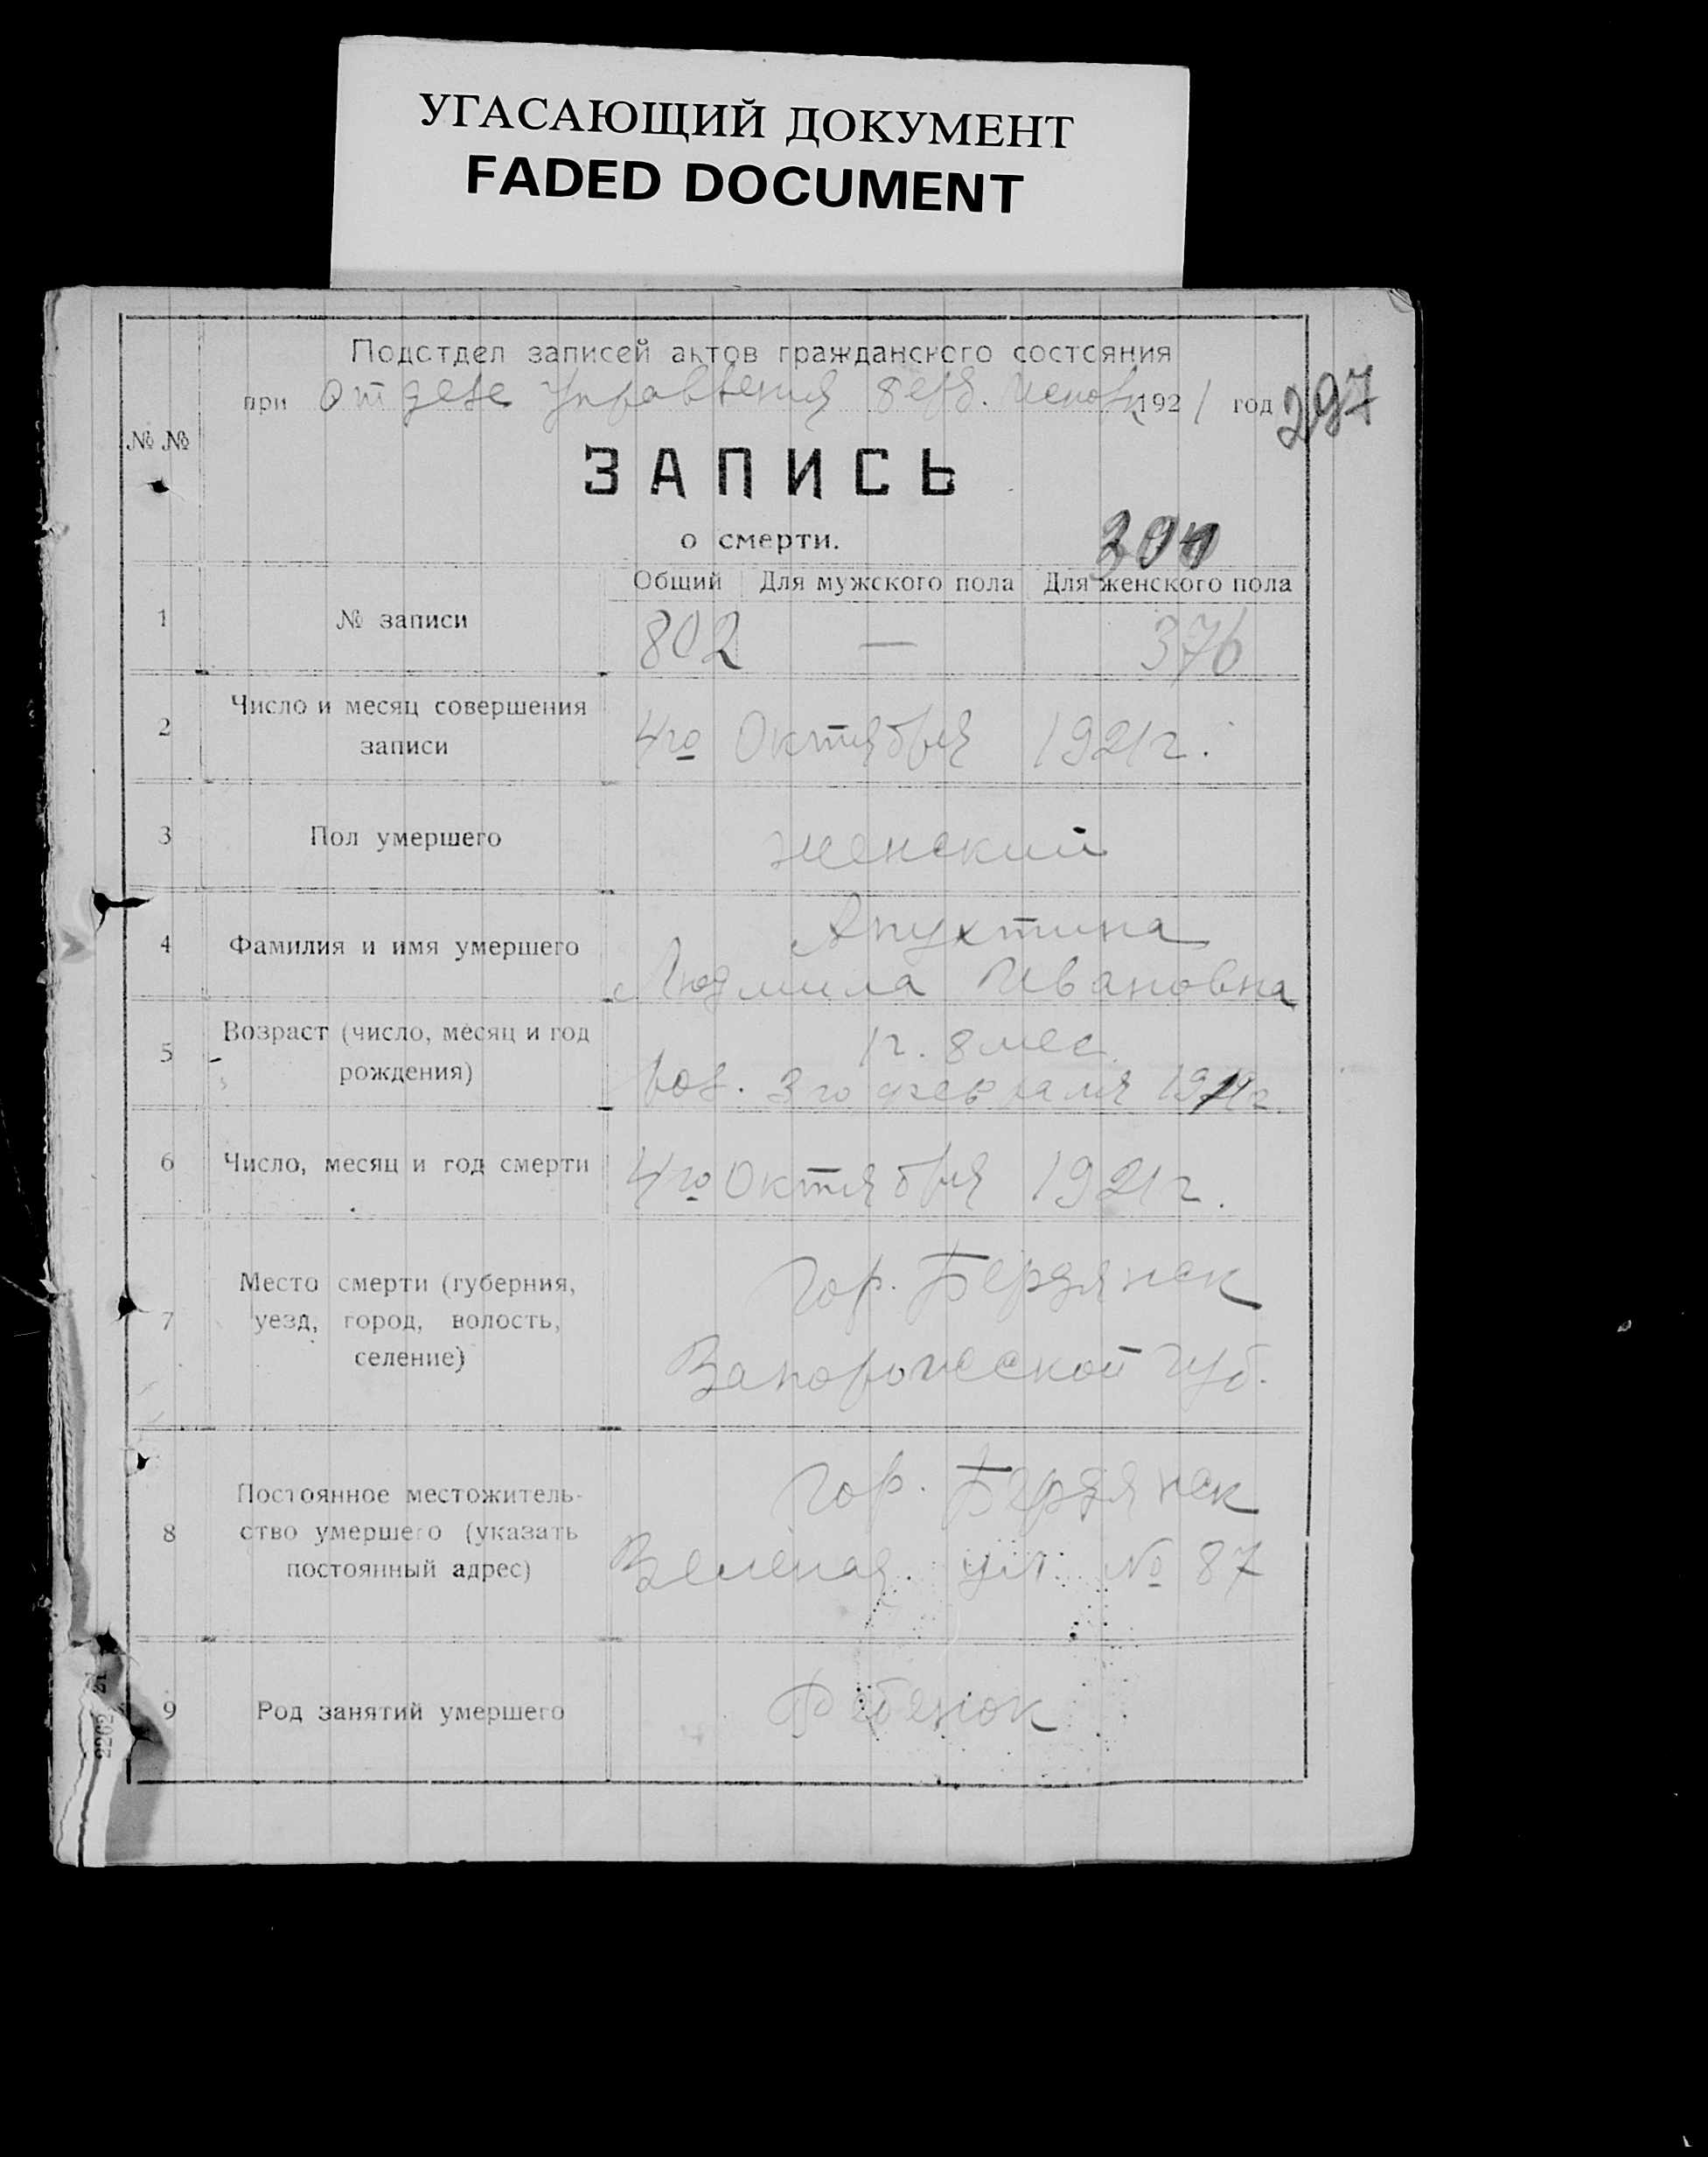 УГАСАЮЩИЙ ДОКУМЕНТ
FADED DOCUMENT
Подотдел записей актов гражданского состояния
при Отделе Управления Берд. Исполк 1921 год
297
№ №
ЗАПИСЬ
о смерти.
Общий Для мужского пола Для женского пола
1 № записи 802 — 376
2 Число и месяц совершения
записи
4го Октября 1921 г.
3 Пол умершего женский
4 Фамилия и имя умершего
Апухтина
Людмила Ивановна
5 Возраст (число, месяц и год
рождения)
1 г. 8 мес.
3го февраля
6 Число, месяц и год смерти 4го Октября 1921 г.
7 Место смерти (губерния,
уезд, город, волость,
селение)
Гор. Бердянск
Запорожской губ.
8 Постоянное местожитель-
ство умершего (указать
постоянный адрес)
Гор. Бердянск
Зеленая ул. № 87
9 Род занятий умершего Ребенок
2202